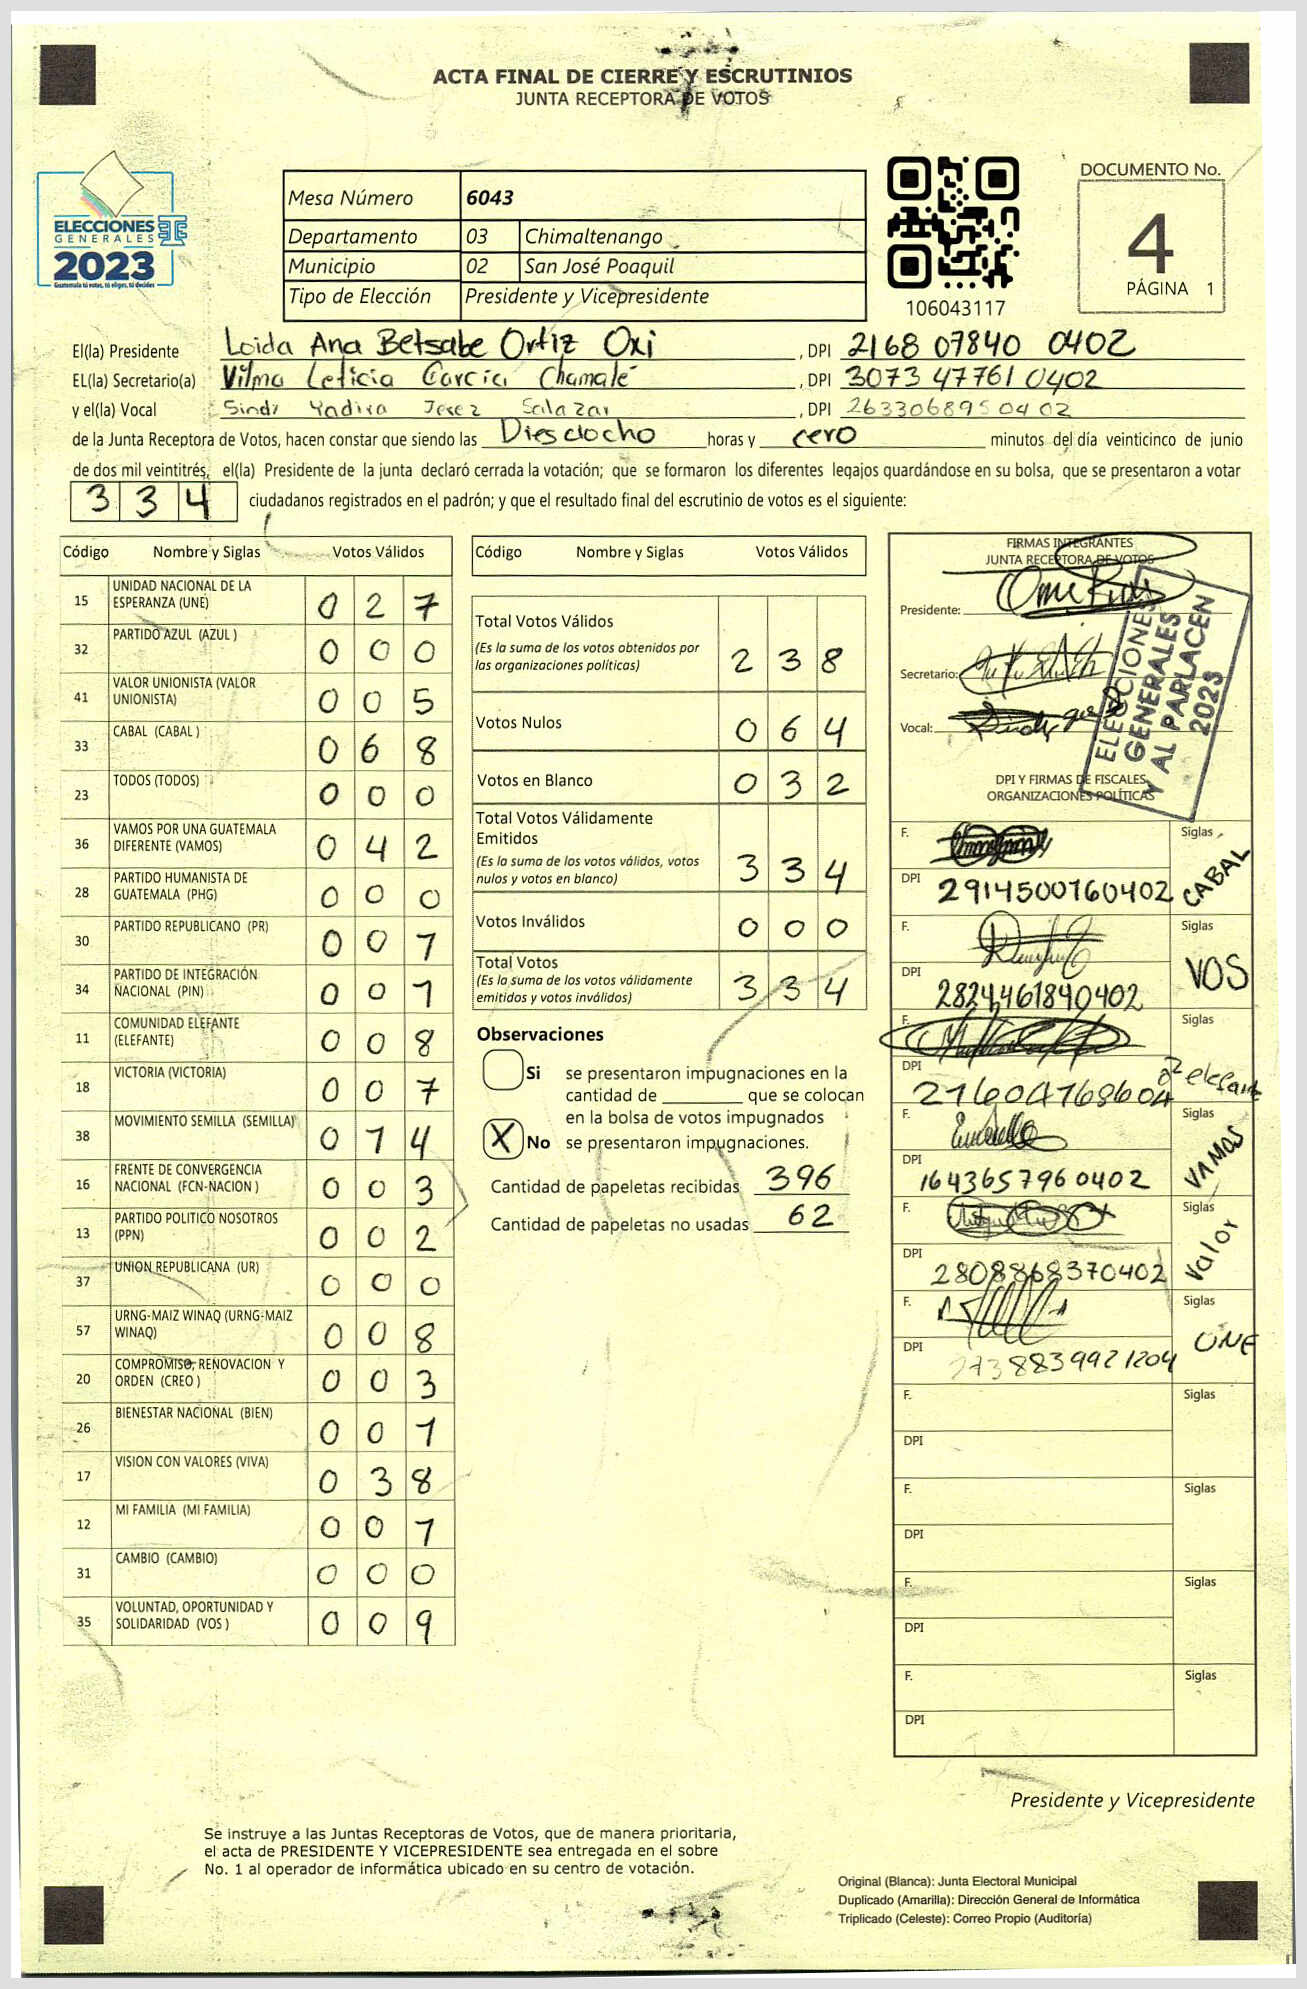 ACTA FINAL DE CIERRE Y ESCRUTINIOS
JUNTA RECEPTORA DE VOTOS
ELECCIONES
GENERALES
2023
Guatemala tú votas, tú eliges, tú decides
Mesa Número 6043
Departamento 03 Chimaltenango
Municipio 02 San José Poaquil
Tipo de Elección Presidente y Vicepresidente
106043117
DOCUMENTO No.
4
PÁGINA 1
El(la) Presidente Loida Ana Betsabe Ortiz Oxi , DPI 2168 07840 0402
EL(la) Secretario(a) Vilma Leticia García Chamalé , DPI 3073 47761 0402
y el(la) Vocal Sindy Yadira Jerez Salazar , DPI 2633068950402
de la Junta Receptora de Votos, hacen constar que siendo las Diesciocho horas y cero minutos del día veinticinco de junio
de dos mil veintitrés, el(la) Presidente de la junta declaró cerrada la votación; que se formaron los diferentes legajos guardándose en su bolsa, que se presentaron a votar
334 ciudadanos registrados en el padrón; y que el resultado final del escrutinio de votos es el siguiente:
Código Nombre y Siglas Votos Válidos
15 UNIDAD NACIONAL DE LA ESPERANZA (UNE) 0 2 7
32 PARTIDO AZUL (AZUL ) 0 0 0
41 VALOR UNIONISTA (VALOR UNIONISTA) 0 0 5
33 CABAL (CABAL ) 0 6 8
23 TODOS (TODOS) 0 0 0
36 VAMOS POR UNA GUATEMALA DIFERENTE (VAMOS) 0 4 2
28 PARTIDO HUMANISTA DE GUATEMALA (PHG) 0 0 0
30 PARTIDO REPUBLICANO (PR) 0 0 1
34 PARTIDO DE INTEGRACIÓN NACIONAL (PIN) 0 0 1
11 COMUNIDAD ELEFANTE (ELEFANTE) 0 0 8
18 VICTORIA (VICTORIA) 0 0 7
38 MOVIMIENTO SEMILLA (SEMILLA) 0 1 4
16 FRENTE DE CONVERGENCIA NACIONAL (FCN-NACION ) 0 0 3
13 PARTIDO POLITICO NOSOTROS (PPN) 0 0 2
37 UNION REPUBLICANA (UR) 0 0 0
57 URNG-MAIZ WINAQ (URNG-MAIZ WINAQ) 0 0 8
20 COMPROMISO, RENOVACION Y ORDEN (CREO ) 0 0 3
26 BIENESTAR NACIONAL (BIEN) 0 0 1
17 VISION CON VALORES (VIVA) 0 3 8
12 MI FAMILIA (MI FAMILIA) 0 0 1
31 CAMBIO (CAMBIO) 0 0 0
35 VOLUNTAD, OPORTUNIDAD Y SOLIDARIDAD (VOS ) 0 0 9
Código Nombre y Siglas Votos Válidos
Total Votos Válidos
(Es la suma de los votos obtenidos por
las organizaciones políticas) 2 3 8
Votos Nulos 0 6 4
Votos en Blanco 0 3 2
Total Votos Válidamente
Emitidos
(Es la suma de los votos válidos, votos
nulos y votos en blanco) 3 3 4
Votos Inválidos 0 0 0
Total Votos
(Es la suma de los votos válidamente
emitidos y votos inválidos) 3 3 4
Observaciones
Si se presentaron impugnaciones en la
cantidad de ________ que se colocan
en la bolsa de votos impugnados
X No se presentaron impugnaciones.
Cantidad de papeletas recibidas 396
Cantidad de papeletas no usadas 62
FIRMAS INTEGRANTES
JUNTA RECEPTORA DE VOTOS
Presidente:
Secretario:
Vocal:
ELECCIONES
GENERALES
Y AL PARLACEN
2023
DPI Y FIRMAS DE FISCALES
ORGANIZACIONES POLÍTICAS
F. Siglas
DPI 2914500760402 CABAL
F. Siglas
DPI 2824461840402 VOS
F. Siglas
DPI elefante
F. Siglas
DPI 1643657960402 VAMOS
F. Siglas
DPI 2808868370402 Valor
F. Siglas
DPI 2738839921204 UNE
F. Siglas
DPI
F. Siglas
DPI
F. Siglas
DPI
F. Siglas
DPI
Presidente y Vicepresidente
Se instruye a las Juntas Receptoras de Votos, que de manera prioritaria,
el acta de PRESIDENTE Y VICEPRESIDENTE sea entregada en el sobre
No. 1 al operador de informática ubicado en su centro de votación.
Original (Blanca): Junta Electoral Municipal
Duplicado (Amarilla): Dirección General de Informática
Triplicado (Celeste): Correo Propio (Auditoría)